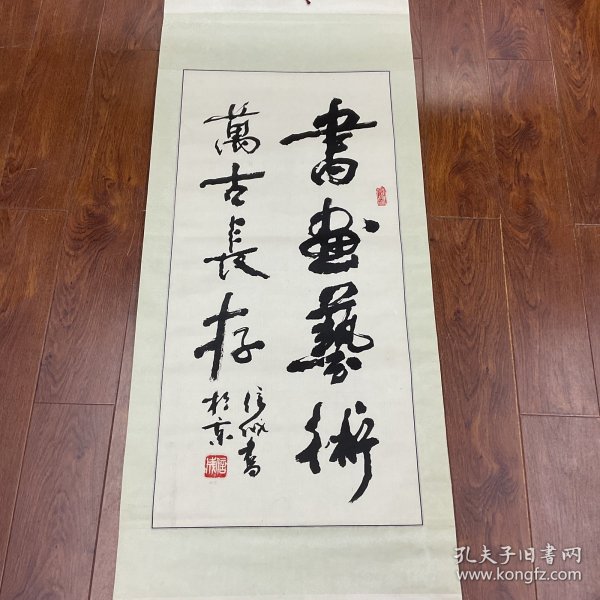 書畫藝術
萬古長存
信成書
於京
孔夫子旧書网
www.kongfz.com